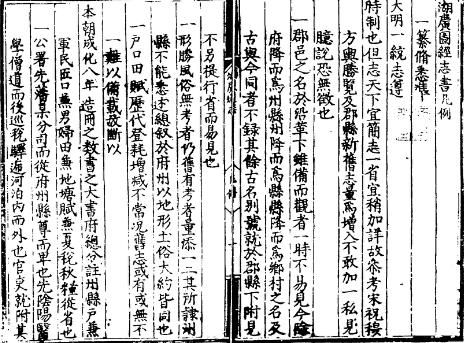 湖廣圖經志書凡例
一纂脩悉遵
大明一統志遵
特制也但志天下宜簡志一省宜稍加詳故叅考宋祝穆
方輿勝覽及郡縣新舊志量爲增入不敢加一私見
臆說恐無徵也
一郡邑之名於沿革下雖備而觀者一時不易見今
府降而爲州縣州降而爲縣縣降而爲鄉村之名及
古與今同者不録其餘古名别號就於郡縣下附見
不另提行省而易見也
一形勝風俗無考者仍舊有考者量添一二其所隸州
縣不能悉述總叙於府州以地形土俗大約皆同也
一戶口田賦歷代登耗增減不常况舊志或有或無不
一難以備載故斷以
本朝成化八年造冊之數書之大書府總分註州縣戶兼
軍民匠口無男婦田無地塘賦無夏稅秋糧從省也
公署先藩臬分司而從府州縣尊而单也先陰陽醫
學僧道而後巡稅驛逓河泊內而外也官吏就附其